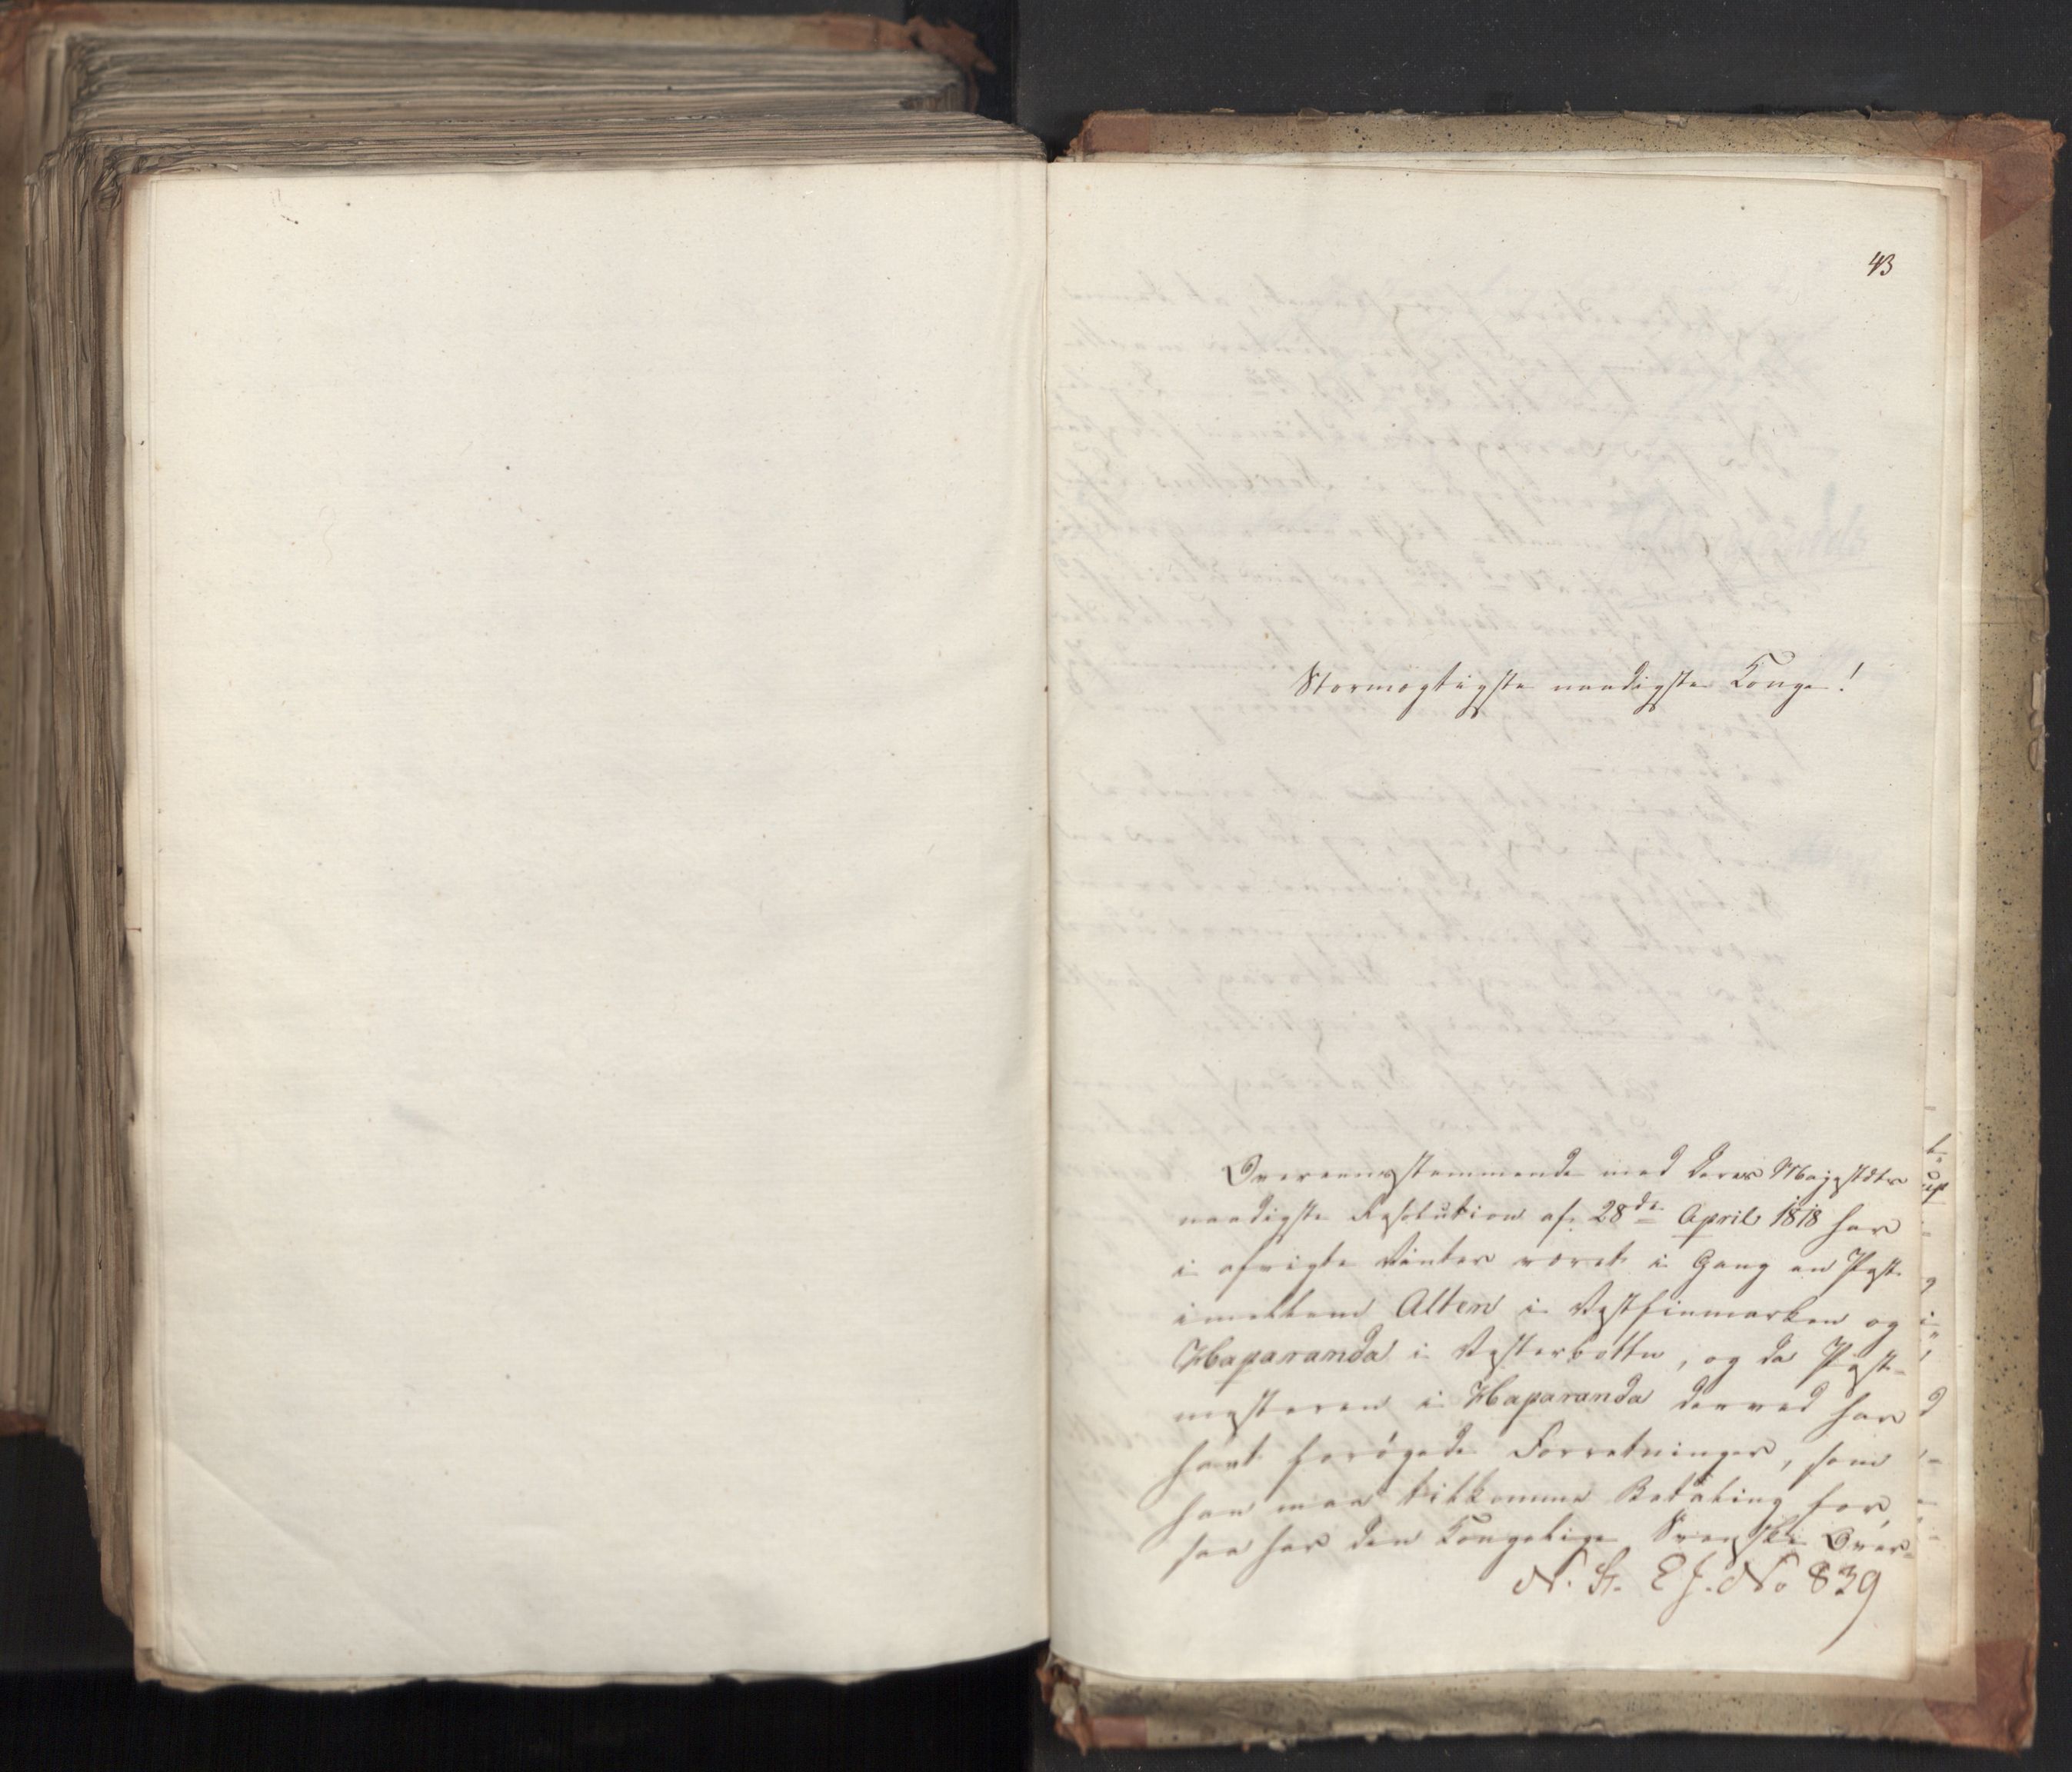 43
Stormægtigste naadigste Konge!
Overeensstemmende med Deres Majestæts
naadigste Resolution af 28de April 1818 har
i afvigte Vinter været i Gang en Post
imellem Alten i Vestfinmarken og
Haparanda i Vesterbotten, og da Post-
mesteren i Haparanda derved har
havt forøgede Forretninger, som
han maa tilkomme Betaling for,
saa har den Kongelige Svenske Over-
N. St. E J. No 839